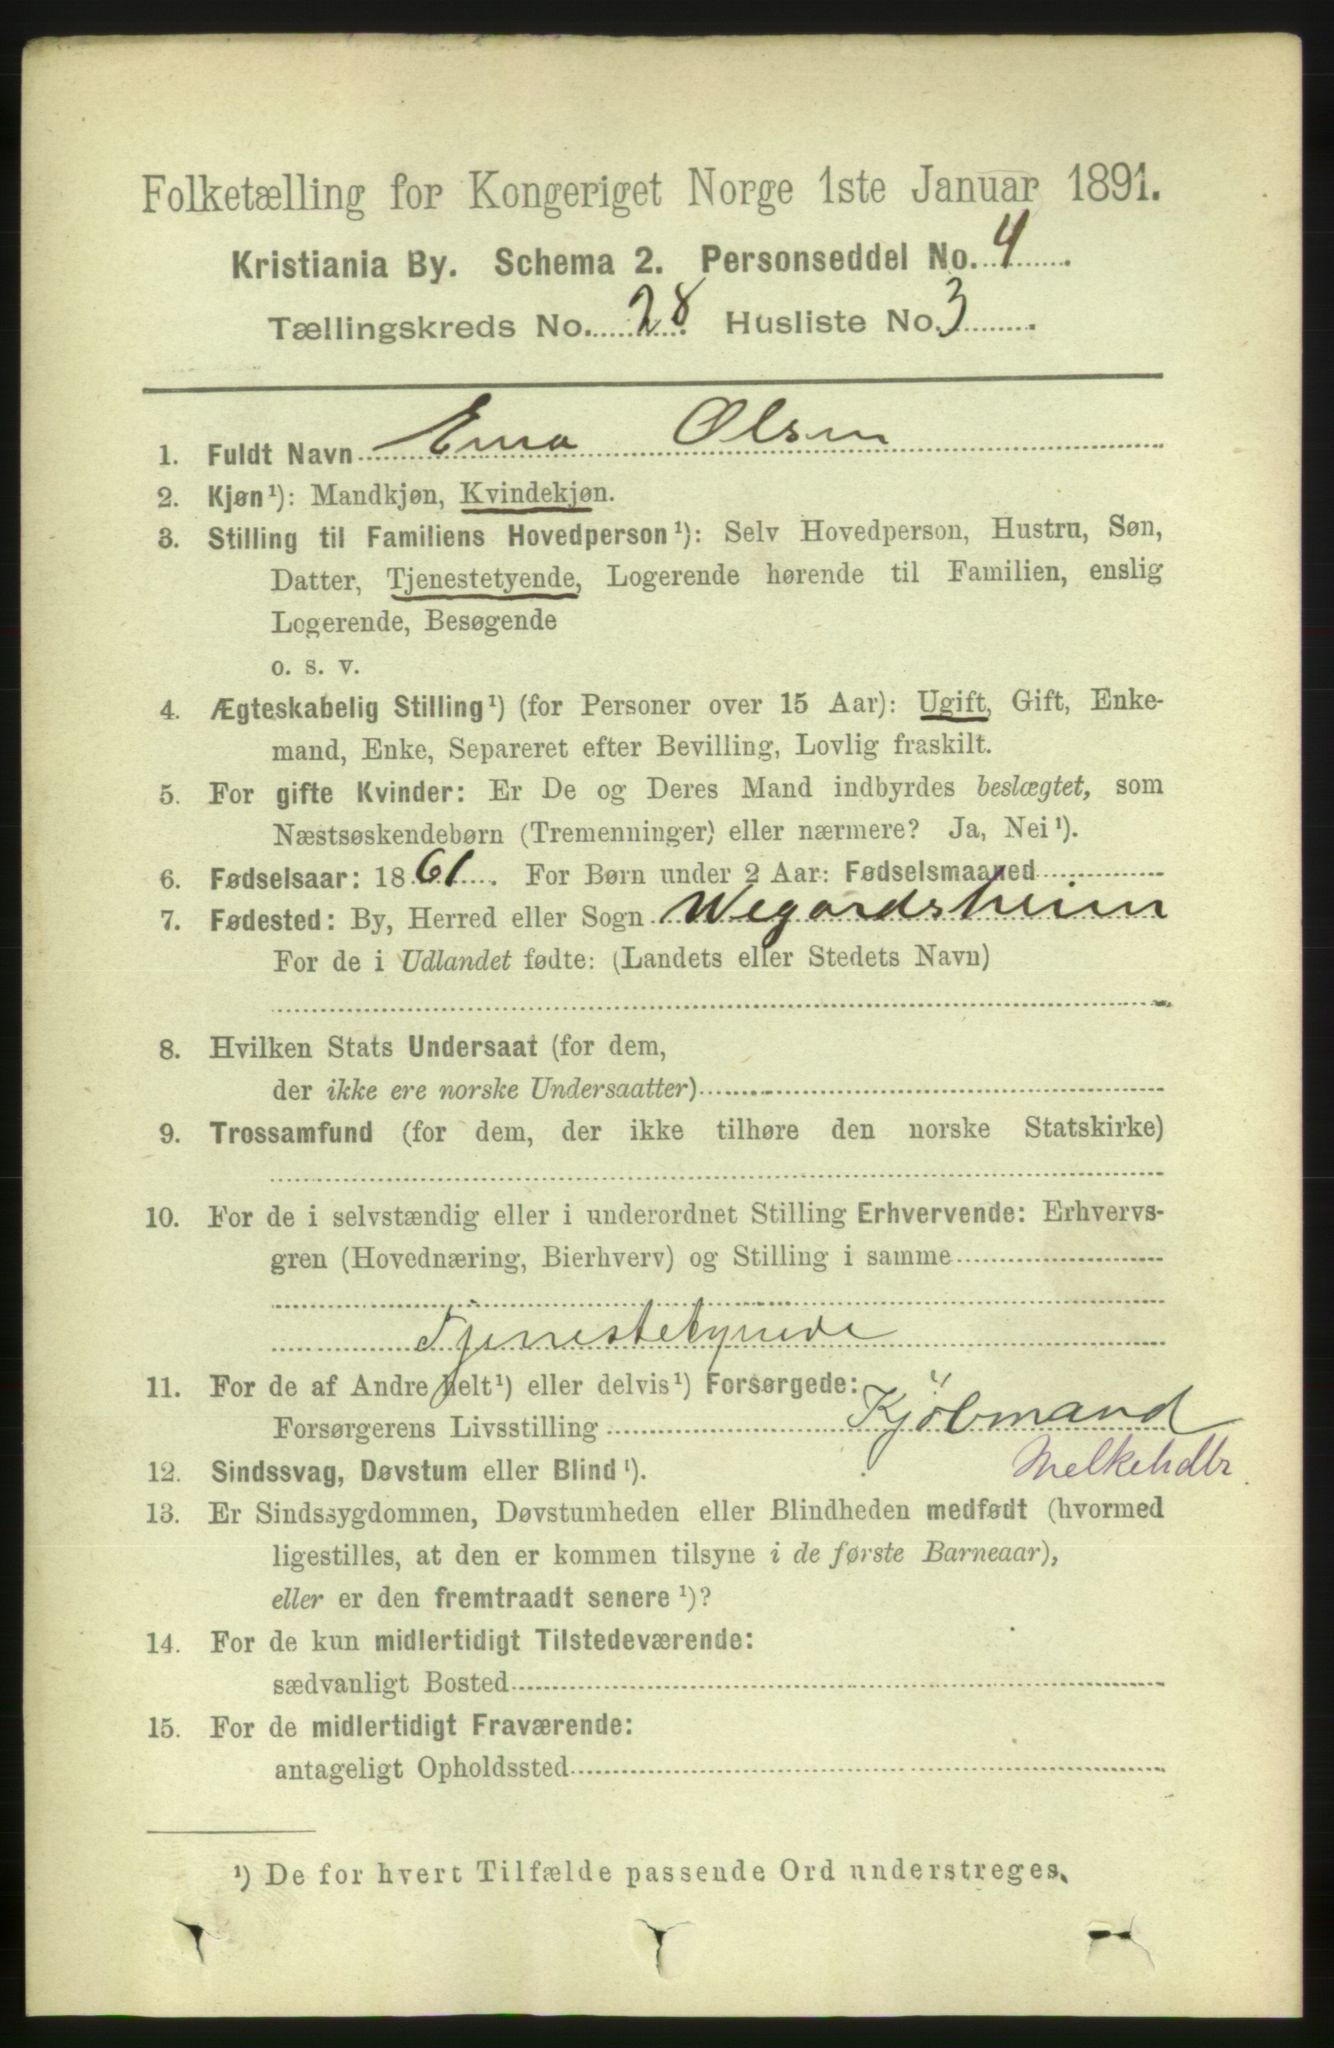 Folketælling for Kongeriget Norge 1ste Januar 1891.
Kristiania By. Schema 2. Personseddel No. 4
Tællingskreds No. 28 Husliste No. 3
1. Fuldt Navn Ema Olsen
2. Kjøn¹): Mandkjøn, Kvindekjøn.
3. Stilling til Familiens Hovedperson¹): Selv Hovedperson, Hustru, Søn,
Datter, Tjenestetyende, Logerende hørende til Familien, enslig
Logerende, Besøgende
o. s. v.
4. Ægteskabelig Stilling¹) (for Personer over 15 Aar): Ugift, Gift, Enke-
mand, Enke, Separeret efter Bevilling, Lovlig fraskilt.
5. For gifte Kvinder: Er De og Deres Mand indbyrdes beslægtet, som
Næstsøskendebørn (Tremenninger) eller nærmere? Ja, Nei¹).
6. Fødselsaar: 1861. For Børn under 2 Aar: Fødselsmaaned
7. Fødested: By, Herred eller Sogn Wegardsheim
For de i Udlandet fødte: (Landets eller Stedets Navn)
8. Hvilken Stats Undersaat (for dem,
der ikke ere norske Undersaatter)
9. Trossamfund (for dem, der ikke tilhøre den norske Statskirke)
10. For de i selvstændig eller i underordnet Stilling Erhvervende: Erhvervs-
gren (Hovednæring, Bierhverv) og Stilling i samme
Tjenestetynede
11. For de af Andre helt¹) eller delvis¹) Forsørgede:
Forsørgerens Livsstilling Kjöbmand
Melkehdlr
12. Sindssvag, Døvstum eller Blind¹).
13. Er Sindssygdommen, Døvstumheden eller Blindheden medfødt (hvormed
ligestilles, at den er kommen tilsyne i de første Barneaar),
eller er den fremtraadt senere¹)?
14. For de kun midlertidigt Tilstedeværende:
sædvanligt Bosted
15. For de midlertidigt Fraværende:
antageligt Opholdssted
¹) De for hvert Tilfælde passende Ord understreges.